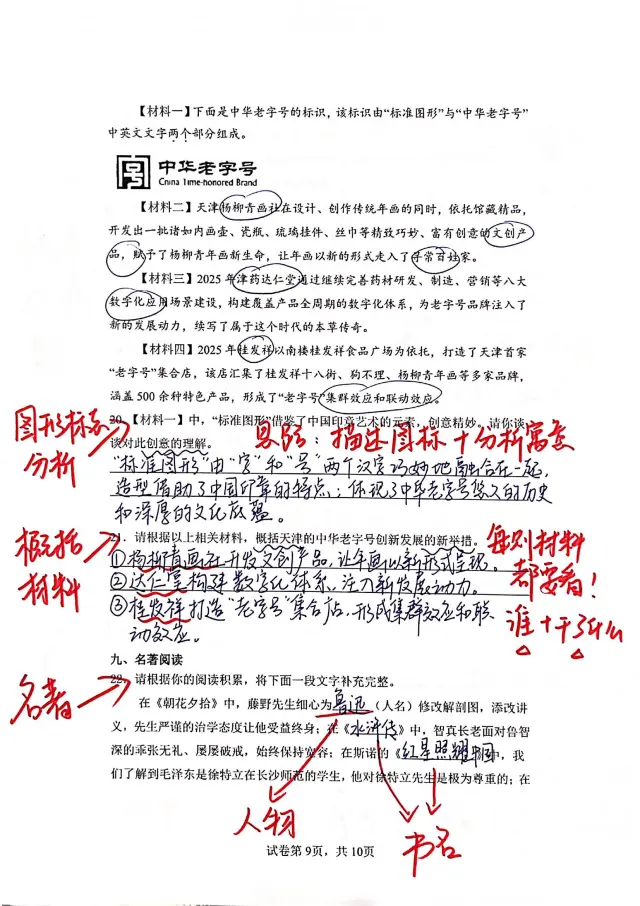 【材料一】下面是中华老字号的标识，该标识由“标准图形”与“中华老字号”
中英文文字两个部分组成。
中华老字号
China Time-honored Brand
【材料二】天津杨柳青画社在设计、创作传统年画的同时，依托馆藏精品，
开发出一批诸如内画壶、瓷瓶、琉璃挂件、丝巾等精致巧妙、富有创意的文创产
品，赋予了杨柳青年画新生命，让年画以新的形式走入了寻常百姓家。
【材料三】2025年津药达仁堂通过继续完善药材研发、制造、营销等八大
数字化应用场景建设，构建覆盖产品全周期的数字化体系，为老字号品牌注入了
新的发展动力，续写了属于这个时代的本草传奇。
【材料四】2025年桂发祥以南楼桂发祥食品广场为依托，打造了天津首家
“老字号”集合店，该店汇集了桂发祥十八街、狗不理、杨柳青年画等多家品牌，
涵盖500余种特色产品，形成了“老字号”集群效应和联动效应。
图形标志
分析
20.【材料一】中，“标准图形”借鉴了中国印章艺术的元素，创意精妙。请你谈
谈对此创意的理解。
思路：描述图标+分析寓意
“标准图形”由“字”和“号”两个汉字巧妙地融合在一起，
造型借助了中国印章的特点；体现了中华老字号悠久的历史
和深厚的文化底蕴。
概括
材料
21.请根据以上相关材料，概括天津的中华老字号创新发展的新举措。
每则材料
都要看！
谁+干了什么
①杨柳青画社开发文创产品，让年画以新形式呈现。
②达仁堂构建数字化体系，注入新发展动力。
③桂发祥打造“老字号”集合店，形成集群效应和联
动效应。
九、名著阅读
名著
22.请根据你的阅读积累，将下面一段文字补充完整。
在《朝花夕拾》中，藤野先生细心为鲁迅（人名）修改解剖图，添改讲
义，先生严谨的治学态度让他受益终身；在《水浒传》中，智真长老面对鲁智
深的乖张无礼、屡屡破戒，始终保持宽容；在斯诺的《红星照耀中国》中，我
们了解到毛泽东是徐特立在长沙师范的学生，他对徐特立先生是极为尊重的；在
人物
书名
试卷第9页，共10页